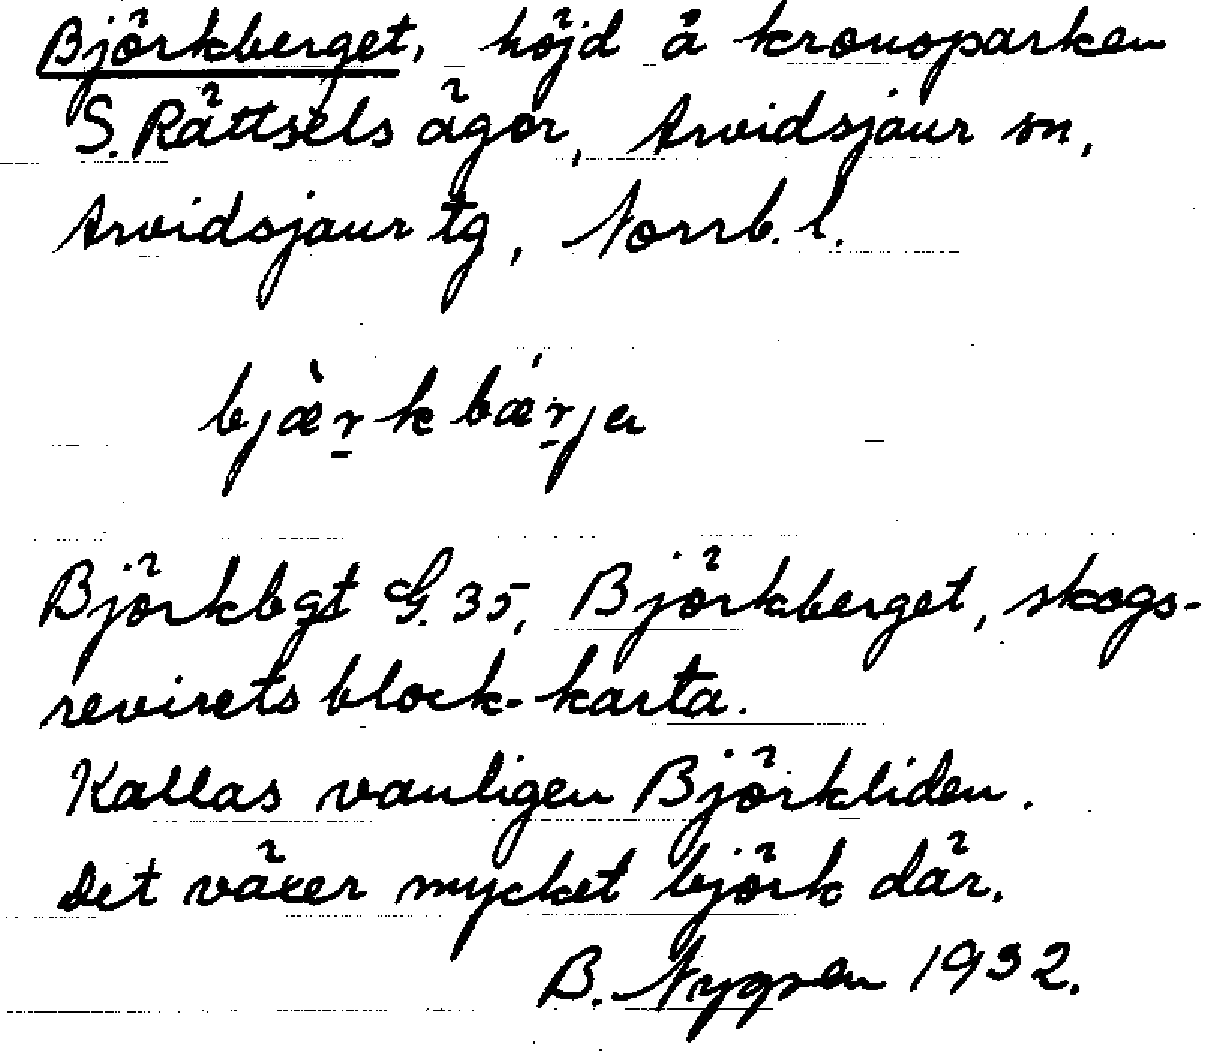 Björkberget, höjd å kronoparken
S. Rättsels ägor, Arvidsjaur sn,
Arvidsjaur tg, Norrb. l.
bjæ̀r̠kbæŕ̠ja
Björkbgt G. 35, Björkberget, skogs-
revirets block-karta.
Kallas vanligen Björkliden.
Det växer mycket björk där.
B. Nygren 1932.